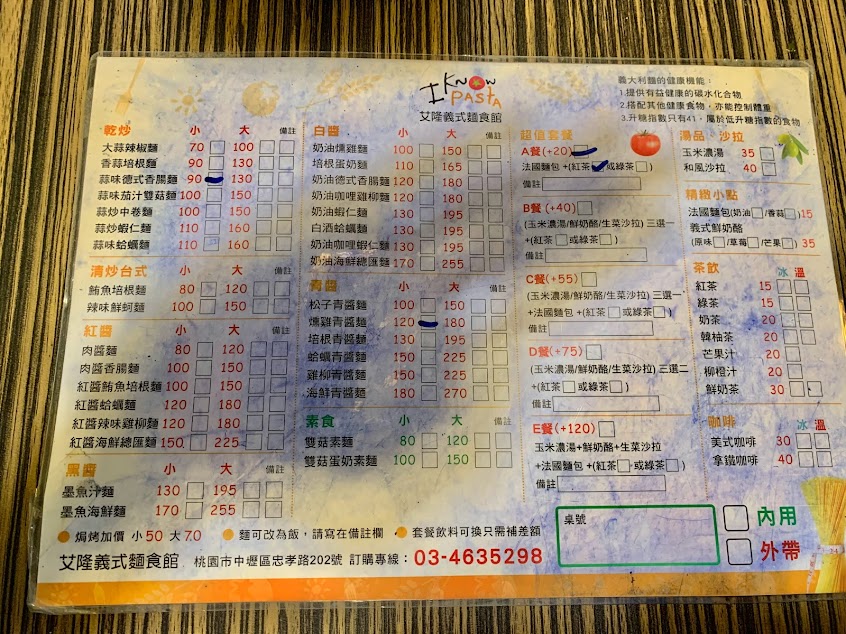 I KNOW PASTA
艾隆義式麵食館
義大利麵的健康機能：
1.提供有益健康的碳水化合物
2.搭配其他健康食物，亦能控制體重
3.升糖指數只有41，屬於低升糖指數的食物
乾炒 小 大 備註
大蒜辣椒麵 70 100
香蒜培根麵 90 130
蒜味德式香腸麵 90 130
蒜味茄汁雙菇麵 100 150
蒜炒中卷麵 100 150
蒜炒蝦仁麵 110 160
蒜味蛤蠣麵 110 160
清炒台式 小 大 備註
鮪魚培根麵 80 120
辣味鮮蚵麵 100 150
紅醬 小 大 備註
肉醬麵 80 120
肉醬香腸麵 100 150
紅醬鮪魚培根麵 100 150
紅醬蛤蠣麵 120 180
紅醬辣味雞柳麵 120 180
紅醬海鮮總匯麵 150 225
黑醬 小 大 備註
墨魚汁麵 130 195
墨魚海鮮麵 170 255
白醬 小 大 備註
奶油燻雞麵 100 150
培根蛋奶麵 110 165
奶油德式香腸麵 120 180
奶油咖哩雞柳麵 120 180
奶油蝦仁麵 130 195
白酒蛤蠣麵 130 195
奶油咖哩蝦仁麵 130 195
奶油海鮮總匯麵 170 255
青醬 小 大 備註
松子青醬麵 100 150
燻雞青醬麵 120 180
培根青醬麵 130 195
蛤蠣青醬麵 150 225
雞柳青醬麵 150 225
海鮮青醬麵 180 270
素食 小 大 備註
雙菇素麵 80 120
雙菇蛋奶素麵 100 150
超值套餐
A餐(+20)
法國麵包 +(紅茶 或綠茶 )
備註
B餐(+40)
(玉米濃湯/鮮奶酪/生菜沙拉) 三選一
+(紅茶 或綠茶 )
備註
C餐(+55)
(玉米濃湯/鮮奶酪/生菜沙拉) 三選一
+法國麵包 +(紅茶 或綠茶 )
備註
D餐(+75)
(玉米濃湯/鮮奶酪/生菜沙拉) 三選二
+(紅茶 或綠茶 )
備註
E餐(+120)
玉米濃湯+鮮奶酪+生菜沙拉
+法國麵包 +(紅茶 或綠茶 )
備註
湯品 沙拉
玉米濃湯 35
和風沙拉 40
精緻小點
法國麵包(奶油 /香蒜 )15
義式鮮奶酪
(原味 /草莓 /芒果 ) 35
茶飲 冰 溫
紅茶 15
綠茶 15
奶茶 20
韓柚茶 20
芒果汁 20
柳橙汁 20
鮮奶茶 30
咖啡 冰 溫
美式咖啡 30
拿鐵咖啡 40
焗烤加價 小50 大70 麵可改為飯，請寫在備註欄 套餐飲料可換只需補差額
艾隆義式麵食館 桃園市中壢區忠孝路202號 訂購專線：03-4635298
桌號
內用
外帶